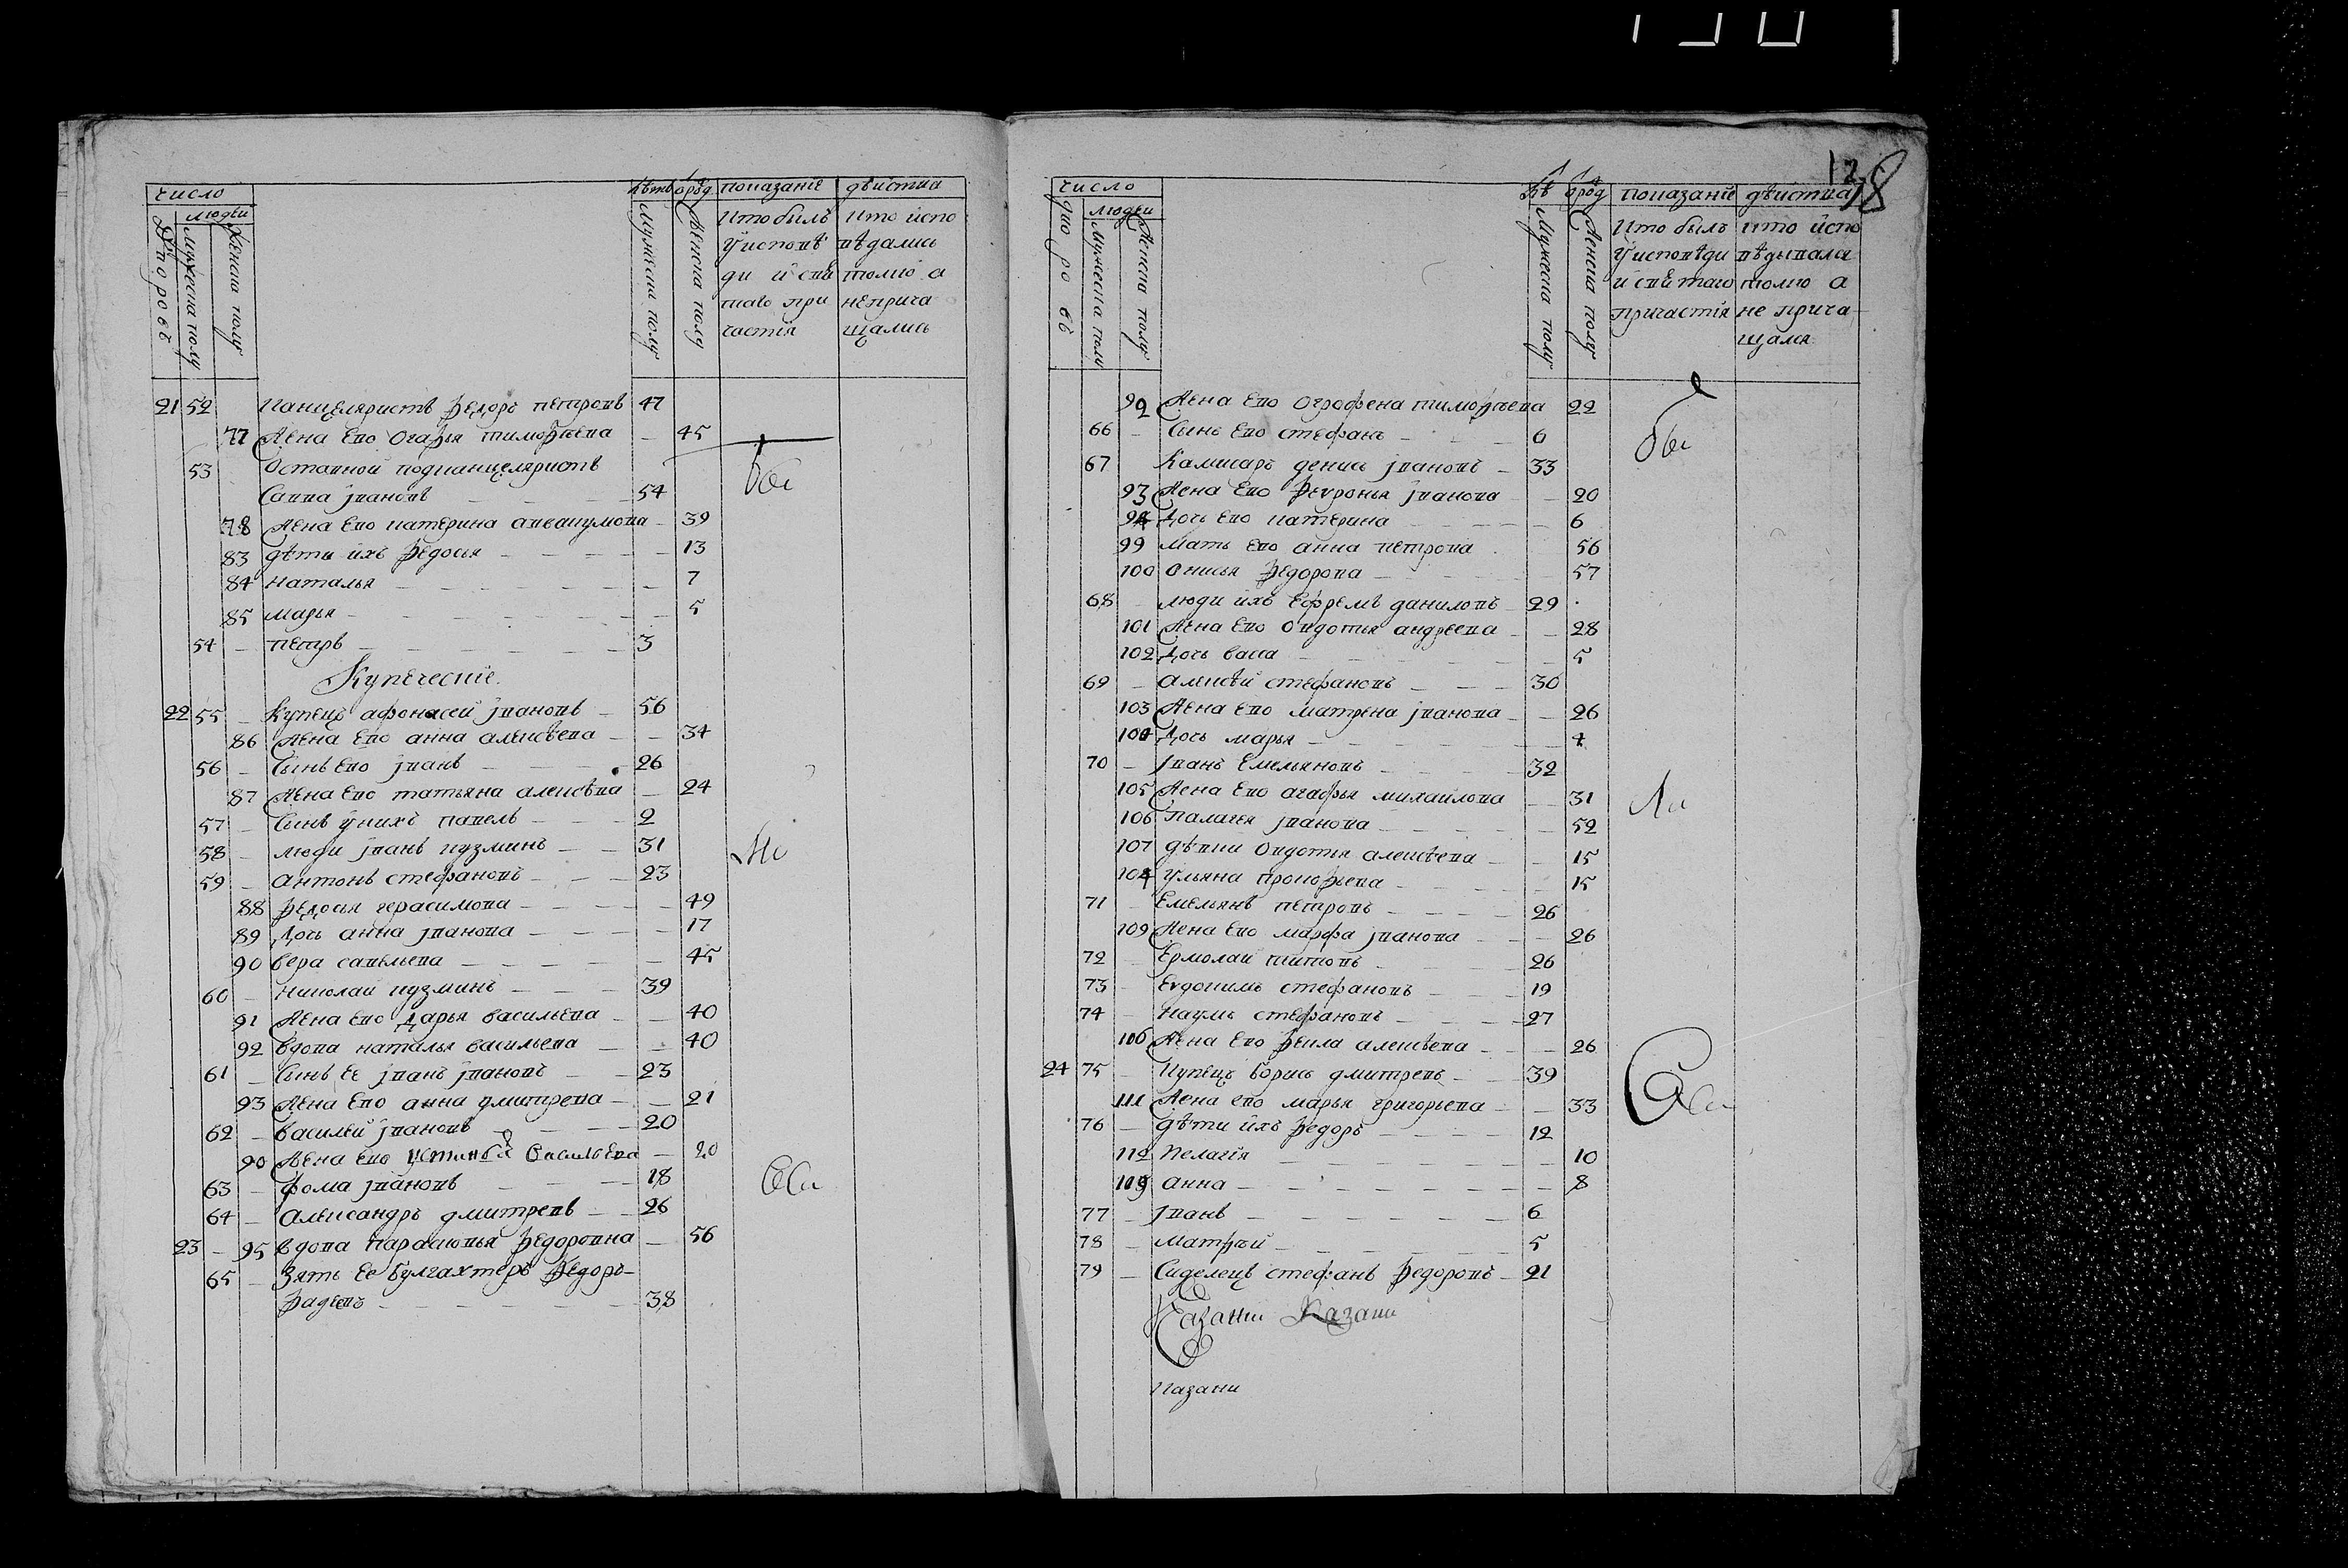 число
людеи
дворовъ
мужеска полу
женска полу
лѣтъ
отрод
мужеска полу
женска полу
показание действа
Кто былъ
у исповѣ
ди и свя
таго при
частия
кто испо
вѣдались
толко а
неприча
щались
21 52 Канцеляристъ Ѳедоръ петровъ 47
77 Жена Ево Огафья тимоѳѣева 45
53 Отставной подканцеляристъ
Савва јвановъ 54
78 Жена Ево катерина авваκумова 39
83 дѣти ихъ Ѳедосья 13
84 наталья 7
85 марья 5
54 петръ 3
Купеческие
22 55 Купецъ афонасеи јвановъ 56
86 Жена Ево анна алексѣева 34
56 Сынъ Ево јванъ 26
87 Жена Ево татьяна алексѣва 24
57 Сынъ у нихъ павелъ 2
58 люди јванъ кузминъ 31
59 антонъ стефановъ 23
88 Ѳедосья герасимова 49
89 Дочь анна јванова 17
90 вера савельева 45
60 николаи кузминъ 39
91 Жена Ево Дарья васильева 40
92 вдова наталья васильева 40
61 Сынъ Ее јванъ јвановъ 23
93 Жена Ево анна дмитрева 21
62 василеи јвановъ 20
90 Жена Ево Васильева 20
63 фома јвановъ 18
64 Александръ дмитревъ 26
23 95 вдова парасковья Ѳедоровна 56
65 Зять Ее булгахтеръ Ѳедоръ
Ѳадѣевъ 38
128
число
людеи
дворовъ
мужеска полу
женска полу
лѣ
отрод
мужеска полу
женска полу
показание действа
Кто былъ
у исповѣди
и святаго
причастия
кто испо
вѣдывался
толко а
не прича
щался
92 Жена Ево Огрофена тимоѳѣева 22
66 Сынъ Ево стефанъ 6
67 Камисаръ денисъ јвановъ 33
93 Жена Ево Ѳевронья јванова 20
94 Дочь Ево катерина 6
99 мать Ево анна петрова 56
100 Онисья Ѳедорова 57
68 люди ихъ Ефремъ даниловъ 29
101 Жена Ево Овдотья андреева 28
102 Дочь васса 5
69 алексѣи стефановъ 30
103 Жена Ево матрена јванова 26
104 Дочь марья 4
70 јванъ Емельяновъ 32
105 Жена Ево агафья михаилова 31
106 Палагея јванова 52
107 дѣвки Овдотья алексѣева 15
Ульяна прокофьева 15
71 Емельянъ петровъ 26
109 Жена Ево марфа јванова 26
72 Ермолаи титовъ 26
73 Евдокимъ стефановъ 19
74 наумъ стефановъ 27
Жена Ево Ѳекла алексѣева 26
24 75 Купецъ борисъ дмитревъ 39
111 Жена ево марья григорьева 33
76 дѣти ихъ Ѳедоръ 12
112 Пелагия 10
анна 8
77 јванъ 6
78 матѳѣи 5
79 Сиделецъ стефанъ Ѳедоровъ 21
Казани Казани
Казани